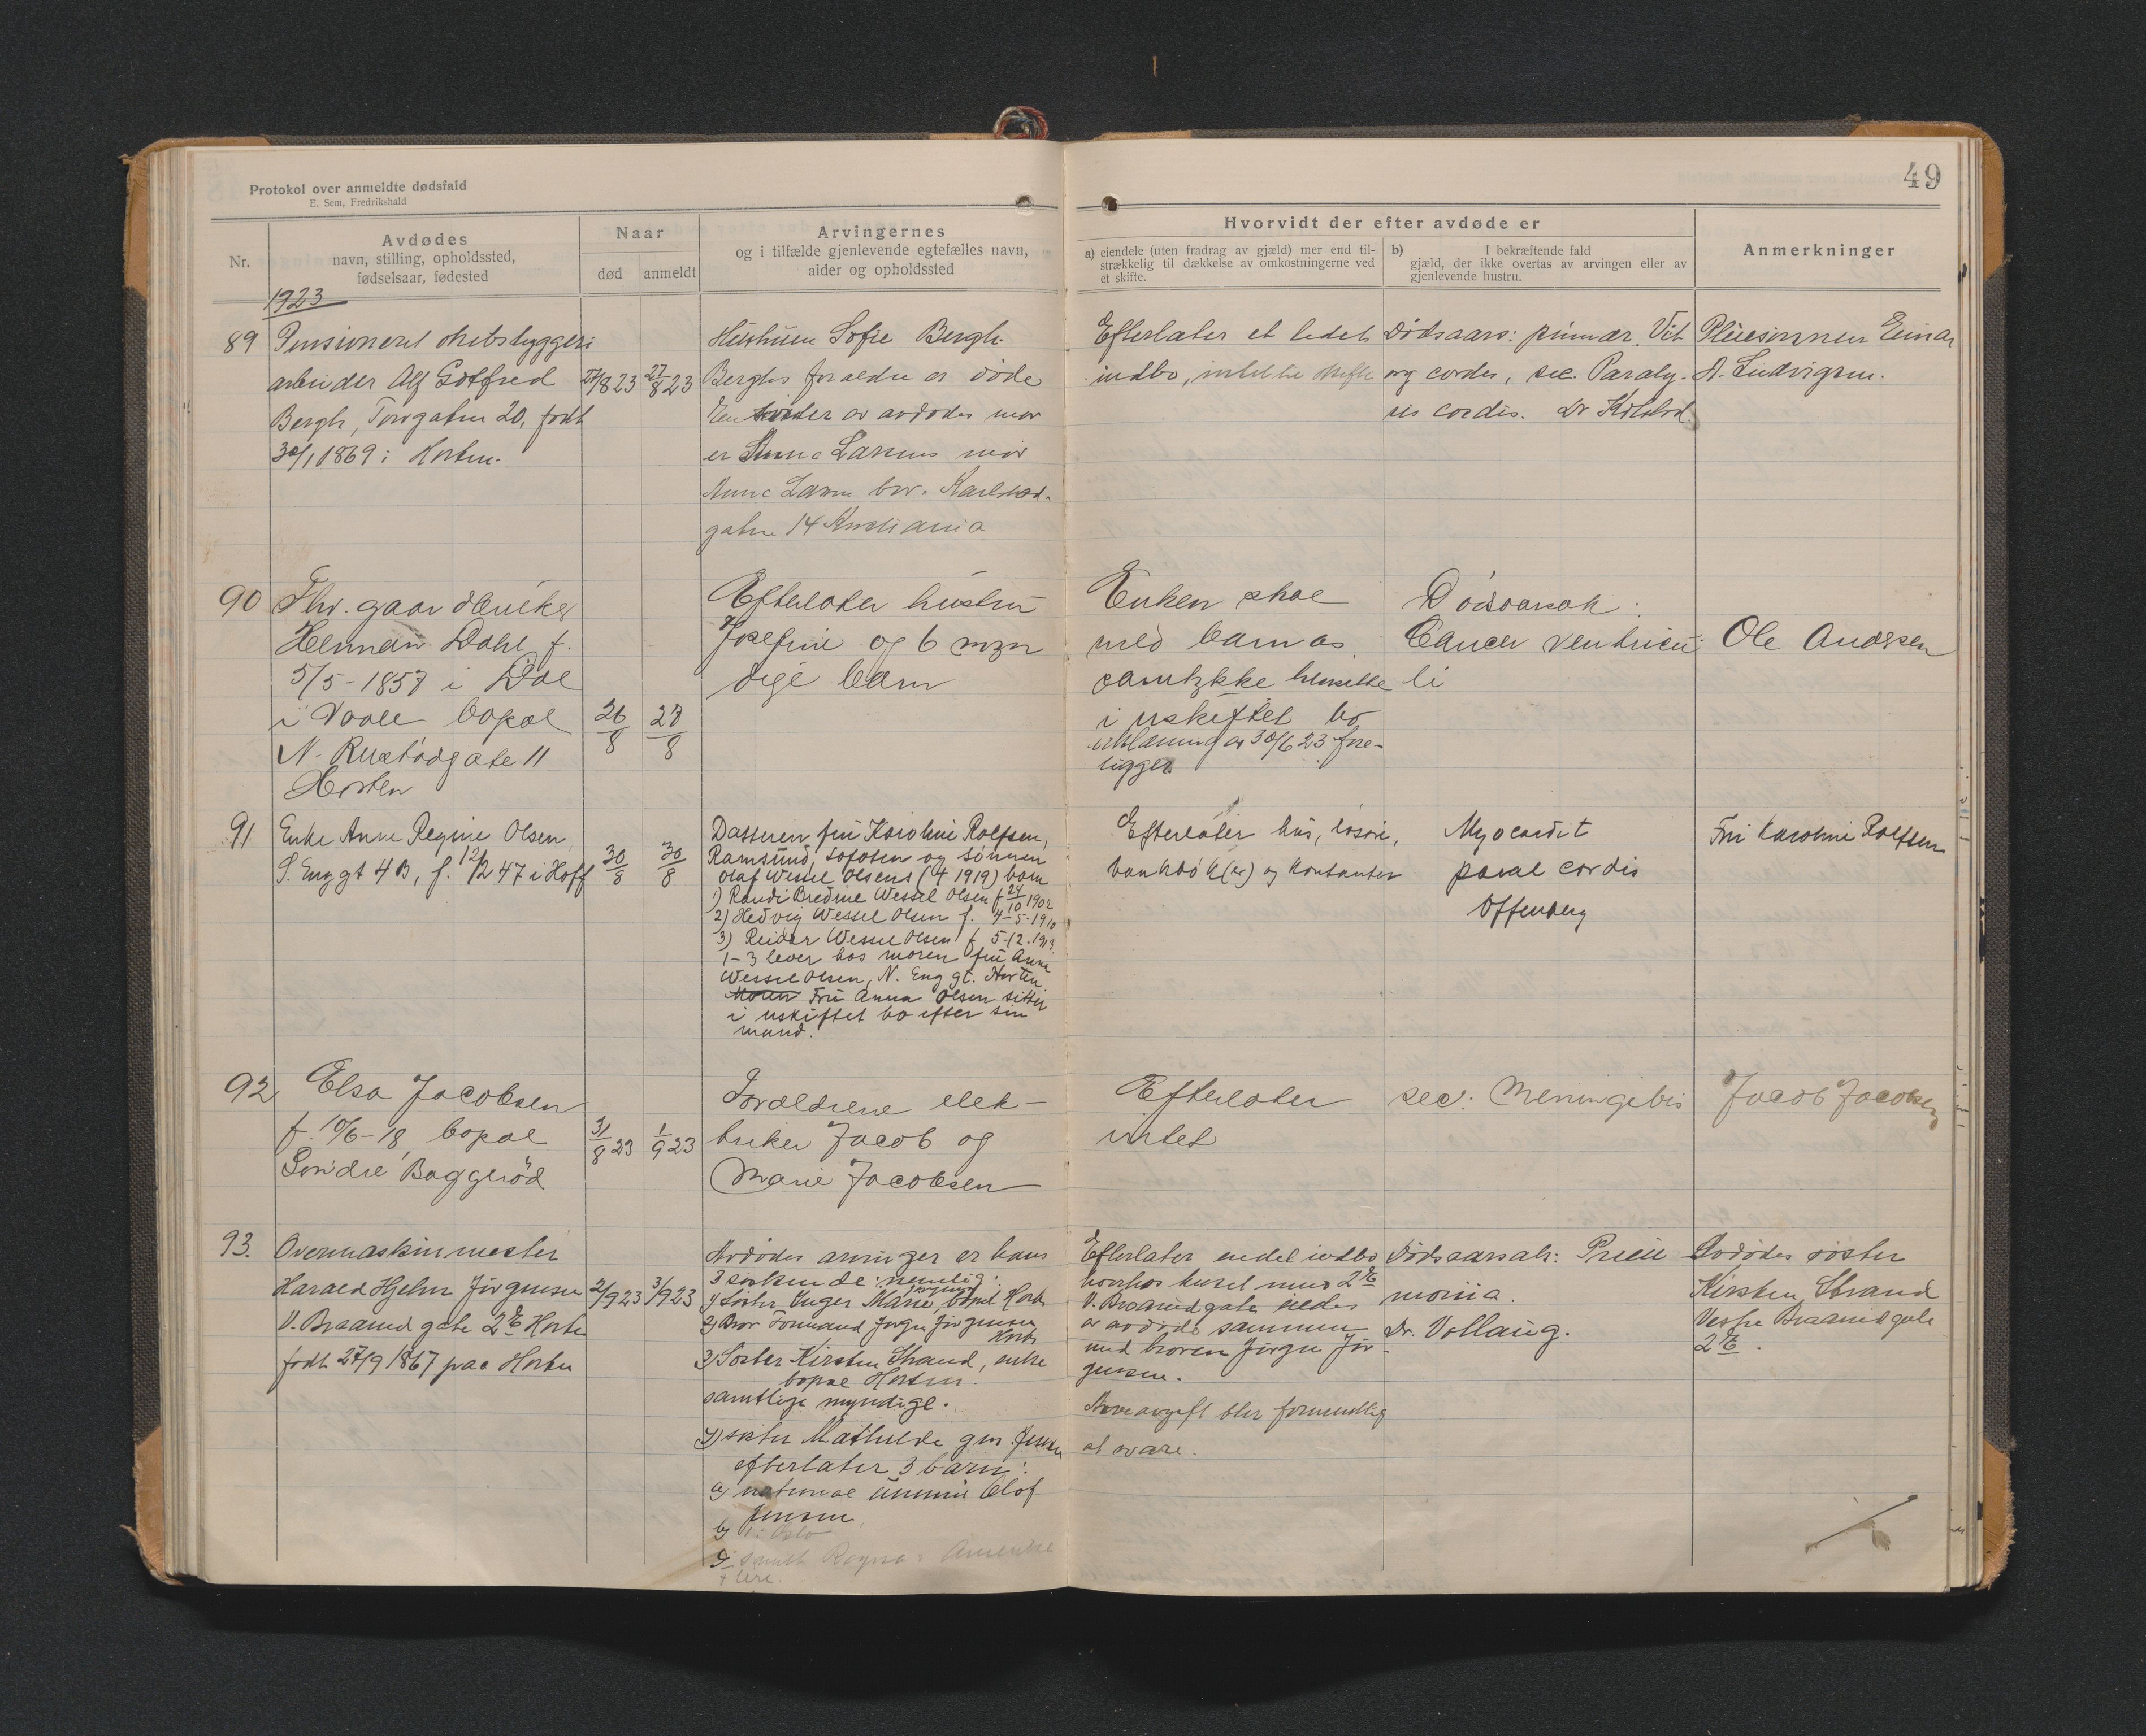 49
Protokol over anmeldte dødsfald
E. Sem, Fredrikshald
Nr.
Avdødes
navn, stilling, opholdssted,
fødselsaar, fødested
Naar
død
anmeldt
Arvingernes
og i tilfælde gjenlevende egtefælles navn,
alder og opholdssted
Hvorvidt der efter avdøde er
a) eiendele (uten fradrag av gjæld) mer end til-
strækkelig til dækkelse av omkostningerne ved
et skifte.
b) I bekræftende fald
gjæld, der ikke overtas av arvingen eller av
gjenlevende hustru.
Anmerkninger
1923
89
Pensioneret
arbeider Alf Gotfred
Bergh, Torvgaten 20, født
30/1 1869 i Horten.
27/8 23
27/8 23
Hustruen Sofie Bergh.
Berghs foraldre er døde
En søster av avdødes mor
er Anna Larsens mor
Anna Larsen bor. Karlstad-
gaten 14 Kristiania
Efterlater et litet
indbo, intet til skifte
Dødsaars: primær. Vit
org cordis, sec. Paraly-
sis cordis. Dr
Pleiesønnen Einar
A. Ludvigsen.
90
Fhv. gaardbruker
Herman Dahl f.
5/5-1857 i Dal
i Vaale bopæl
N. gate 11
Horten
26/8
27/8
Efterlater hustru
Josefine og 6 myn
dige barn
Enken skal
med barnas
samtykke hensitte
i uskiftet bo
erklæring av 30/6 23 fore-
ligger
Dødsaarsak:
Cancer ventricu
li
Ole Andersen
91
Enke Anne Regine Olsen
S. Enggt 4B, f. 12/12 47 i Hoff
30/8
30/8
Datteren fru Karoline Rolfsen,
Ramsund, Lofoten og sønnen
Olaf Wessel Olsens († 1919) barn
1) Randi Bredine Wessel Olsen f 24/10 1902
2) Hedvig Wessel Olsen f. 4-5-1910
3) Reidar Wessel Olsen f 5-12-1913
1-3 lever hos moren fru Anna
Wessel Olsen, N. Eng gt. Horten.
Moren Fru Anna Olsen sitter
i uskiftet bo efter sin
mand.
Efterlater hus, løsøre,
bankbok(er) og kontanter
Myocardit
paral cordis
Offenberg
Fru Karoline Rolfsen
92
Elsa Jacobsen
f. 10/6-18 bopæl
Søndre Baggerød
31/8 23
1/9 23
Foraldrene elek-
triker Jacob og
Marie Jacobsen
Efterlater
intet
sec: Meningitis
Jacob Jacobsen
93.
Overmaskinmester
Harald Hjelm Jørgensen
V. Braarud gate 2b Horten
født 27/9 1867 paa Horten
2/9 23
3/9 23
Avdødes arvinger er hans
3 søskende: nemlig:
1) Søster Inger Marie, bopæl Horten
2) Bror Formand Jørgen Jørgensen
Horten
3) Søster Kirsten Strand, enke
bopæl Horten.
samtlige myndige.
4) søster Mathilde gm. Jensen
efterlater 3 barn:
a) Olof
Jensen
b) i Oslo
c) Smith Ragna i Amerika
Efterlater endel indbo
huset no 2b
V. Braarudgaten eiedes
av avdøde sammen
med broren Jørgen Jør-
gensen.
Arveavgift blir formentlig
at svare.
Dødsaarsak: Pneu
monia.
Dr. Vollaug.
Avdødes søster
Kirsten Strand
Vestre Braarudgate
2b.